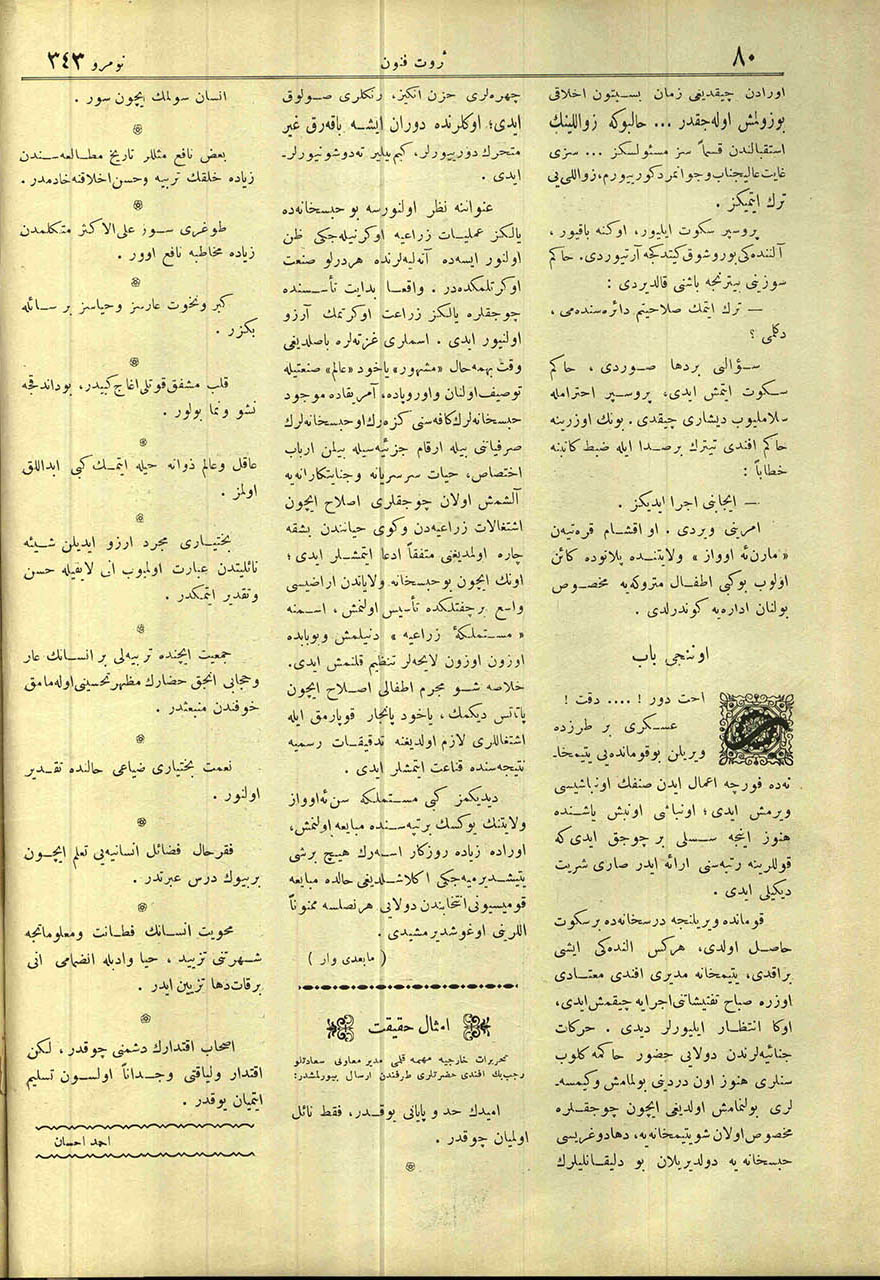 ٨٠
ثروت فنون
نومرو ٣٤٣
اورادن چیقدیغی زمان بسبتون اخلاقی
بوزولمش اوله‌جقدر ... حالبوكه زواللینك
استقبالندن قسماً سز مسئولسكز ... سزی
غایت عالیجناب وجوانمرد كوریيورم، زواللی‌یی
ترك ایتمیكز .
پروسپر سكوت ایلیور، اوكنه باقیور،
آلننده‌كی بوروشوق كیتدكجه آرتیوردی. حاكم
سوزینی بیترنجه باشنی قالدیردی :
— ترك ایتمك صلاحیتم دائره‌سنده‌می،
دكلی ؟
سؤالی بردها صوردی، حاكم
سكوت ایتمش ایدی، پروسپر احترامله
سلاملیوب دیشاری چیقدی. بونك اوزرینه
حاكم افندی تیترك برصدا ایله ضبط كاتبنه
خطاباً :
— ایجابنی اجرا ایدیكز .
امرینی ویردی . او اقشام قره‌تیه‌ن
« مارن ئه اوواز » ولایتنده پلانوده كائن
اولوب بوكبی اطفال متروكه‌یه مخصوص
بولنان اداره‌یه كوندرلدی .
اوننجی باب
احت دور ! .... دقت !
عسكری بر طرزده
ویریلن بوقوماندەیی یتیمخا-
نه‌ده فورچه اعمال ایدن صنفك اونباشیسی
ویرمش ایدی؛ اونباشی اونبش یاشنده
هنوز اینجه سسلی بر چوجق ایدی‌كه
قوللرینه رتبه‌سنی ارائه ایدر صاری شریت
دیكیلی ایدی .
قومانده ویریلنجه درسخانه‌ده برسكوت
حاصل اولدی، هركس النده‌كی ایشی
براقدی، یتیمخانه مدیری افندی معتادی
اوزره صباح تفتیشاتی اجرایه چیقمش ایدی،
اوكا انتظار ایلیورلر دیدی . حركات
جنائیه‌لرندن دولایی حضور حاكمه كلوب
سنلری هنوز اون دردینی بولمامش وكیمسه-
لری بولنمامش اولدیغی ایچون چوجقلره
مخصوص اولان شو یتیمخانه‌یه، دها دوغریسی
حبسخانه یه دولدیریلان بو دلیقانلیلرك
چهره‌لری حزن انكیز، رنكلری صولوق
ایدی؛ اوكلرنده دوران ایشه باقەرق غیر
متحرك دورییورلر، كیم بیلیر نه‌دوشونیورلر-
ایدی .
عنواننه نظر اولنورسه بو حبسخانه‌ده
یالكز عملیات زراعیه اوكرنیله‌جكی ظن
اولنور ایسه‌ده آتەلیه‌لرنده هردرلو صنعت
اوكرتلمكده‌در . واقعا بدایت تأسسنده
چوجقلره یالكز زراعت اوكرتمك آرزو
اولنیور ایدی . اسملری غزته‌لره باصلدیغی
وقت بهمه‌حال «مشهور» یاخود «عالم» صنعتیله
توصیف اولنان واوروپاده، آمریقاده موجود
حبسخانه‌لرك كافه‌سنی كزه‌رك او حبسخانه‌لرك
صرفیاتنی بیله ارقام جزئیه‌سیله بیلن ارباب
اختصاص، حیات سرسریانه وجنایتكارانه‌یه
آلشمش اولان چوجقلری اصلاح ایچون
اشتغالات زراعیه‌دن وكوی حیاتندن بشقه
چاره اولمدیغنی متفقاً ادعا ایتمشلر ایدی؛
اونك ایچون بو حبسخانه ولایاتدن اراضیسی
واسع برچفتلكده تأسیس اولنمش، اسمنه
« مستملكهٔ زراعیه » دنیلمش وبوبابده
اوزون اوزون لایحه‌لر تنظیم قلنمش ایدی.
خلاصه شو مجرم اطفالی اصلاح ایچون
پاتاتس دیكمك، یاخود پانجار قوپارمق ایله
اشتغاللری لازم اولدیغنه تدقیقات رسمیه
نتیجه‌سنده قناعت ایتمشلر ایدی .
دیدیكمز كبی مستملكه سن ئه اوواز
ولایتنك یوكسك برتپه‌سنده مبایعه اولنمش،
اوراده زیاده روزكار اسه‌رك هیچ برشی
یتیشدیرمیه‌جكی اكلاشلدیغی حالده مبایعه
قومیسیونی انتخابندن دولایی هرنصلسه ممنوناً
اللرینی اوغوشدیرمشیدی .
( مابعدی وار )
امثال حقیقت
تحریرات خارجیه مهمه قلمی مدیر معاونی سعادتلو
رجب‌بك افندی حضرتلری طرفندن ارسال بیورلمشدر:
امیدك حد و پایانی یوقدر، فقط نائل
اولمیان چوقدر .
انسان سولمك ایچون سور .
بعض نافع مثللر تاریخ مطالعه‌سندن
زیاده خلقك تربیه وحسن اخلاقنه خادمدر.
طوغری سوز علی‌الاكثر متكلمدن
زیاده مخاطبه نافع اولور .
كبر ونخوت عارسز وحیاسز بر سائله
بكزر .
قلب مشفق قوتلی اغاج كبیدر، بوداندقجه
نشو ونما بولور .
عاقل وعالم ذواته حیله ایتمك كبی ابداللق
اولمز .
بختیاری مجرد ارزو ایدیلن شیئه
نائلیتدن عبارت اولمیوب انی لایقیله حسن
وتقدیر ایتمكدر .
جمعیت ایچنده تربیه‌لی بر انسانك عار
وحجابی انجق حضارك مظهر تحسینی اوله‌مامق
خوفندن منبعثدر .
نعمت بختیاری ضیاعی حالنده تقدیر
اولنور .
فقرحال فضائل انسانیه‌یی تعلم ایچون
بربیوك درس عبرتدر .
محویت انسانك فطانت ومعلوماتجه
شهرتنی تزیید، حیا وادبله انضمامی انی
برقات‌دها تزیین ایدر .
اصحاب اقتدارك دشمنی چوقدر، لكن
اقتدار ولیاقتی وجداناً اولسون تسلیم
ایتمیان یوقدر .
احمد احسان